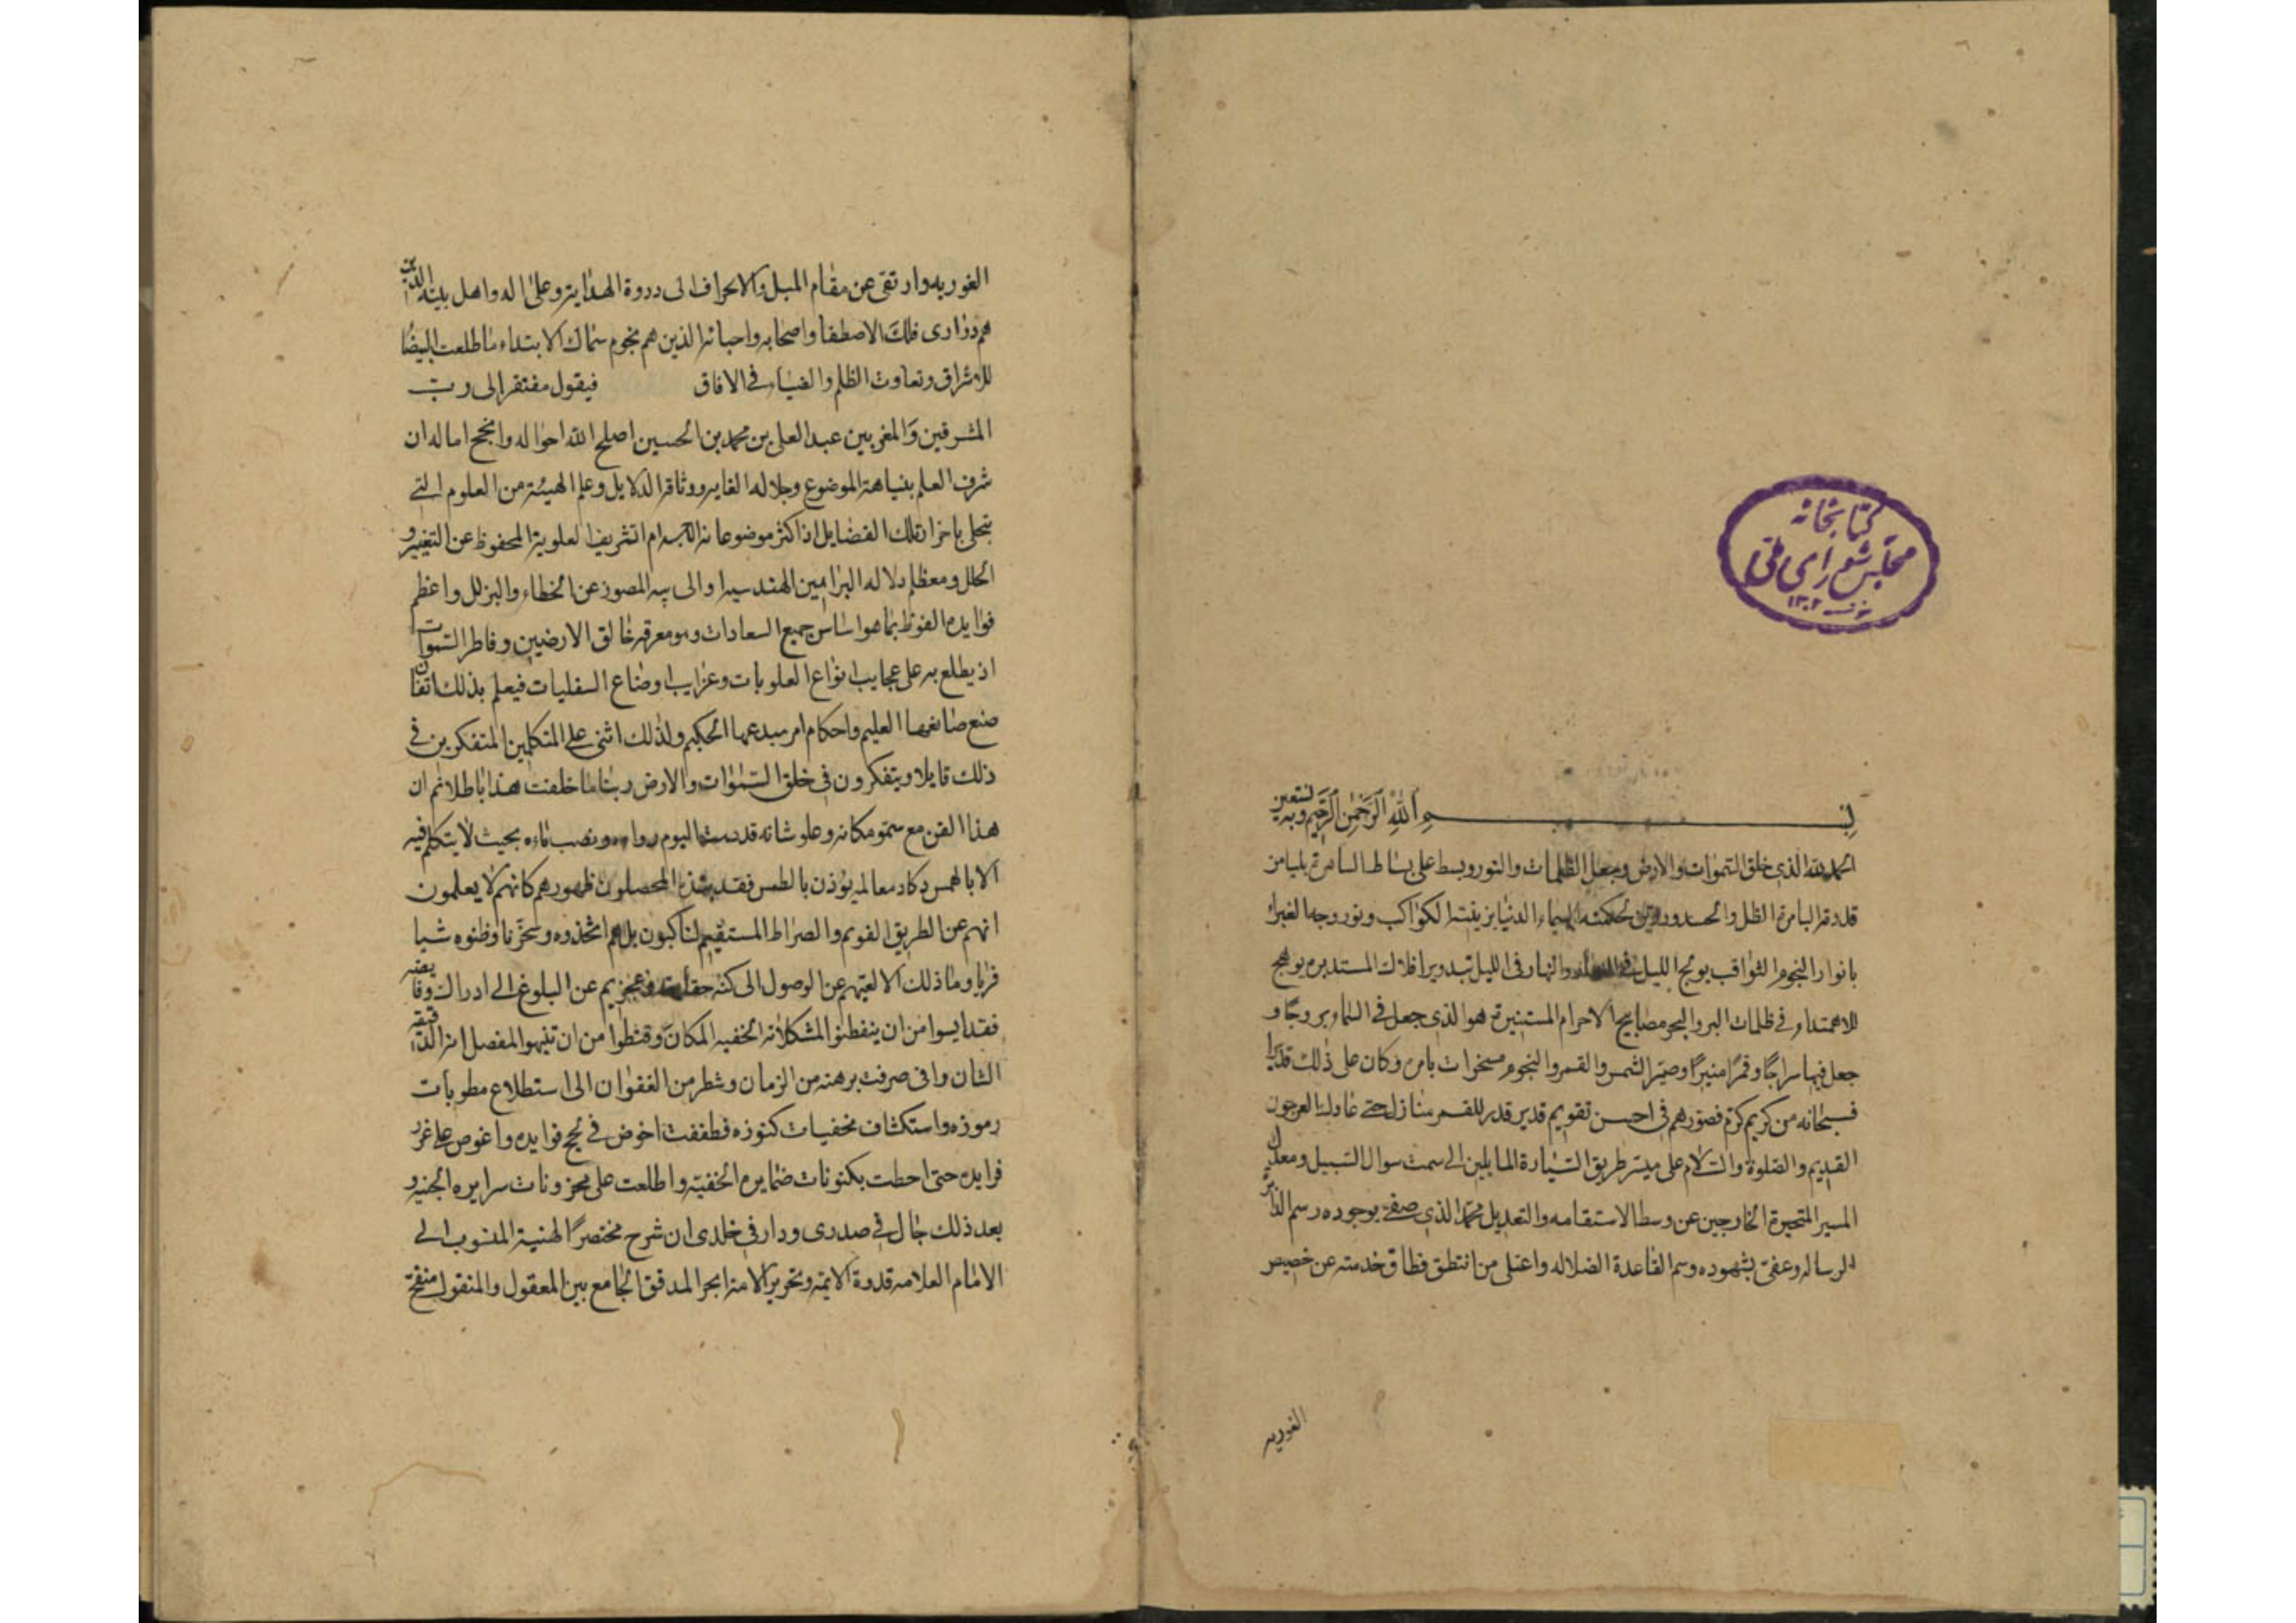 كتابخانه
مجلس شورای ملی
١٣٠٢
بسم الله الرحمن الرحيم وبه نستعين
الحمد لله الذى خلق السموات والارض وجعل الظلمات والنور وبسط على بساط الساهرة بميامن
قدرته الظل والحرور وزين بحكمته السماء الدنيا بزينة الكواكب ونور وجه الغبراء
بانوار النجوم الثواقب يولج الليل فى النهار والنهار فى الليل بتدوير افلاك المستديره يوهج
للاهتداء فى ظلمات البر والبحر مصابيح الاجرام المستنيرة هو الذى جعل فى السماء بروجًا و
جعل فيها سراجًا وقمرًا منيرًا وصير الشمس والقمر والنجوم مسخرات بامره وكان على ذلك قديرا
فسبحانه من كريم كرم فصورهم فى احسن تقويم قدير قدر للقمر منازل حتى عاد كالعرجون
القديم والصلوة والسلام على ميسر طريق السيارة المايلين الى سمت سوال السبيل ومعدل
المسير المتحيرة الخارجين عن وسط الاستقامه والتعديل محمد الذى صفى بوجوده رسم الدائر
الرساله وعفى بشهوده وسم القاعدة الضلاله واعتلى من انتطق فطاق خدمته عن حضيض
الغوريه
الغوريه وارتقى عن مقام الميل والانحراف الى ذروة الهدايه وعلى اله واهل بيته الذين
هم درارى فلك الاصطفا واصحابه واحبائه الذين هم نجوم سماك الابتداء ما طلعت البيضا
للاشراق وتعاوت الظلم والضياء فى الافاق فيقول مفتقر الى رب
المشرقين والمغربين عبد العلى بن محمد بن الحسين اصلح الله احواله وانجح اماله ان
شرف العلم بنباهة الموضوع وجلاله الغايه ووثاقة الدلايل وعلم الهيئة من العلوم التى
تحلى باحراز تلك الفضايل اذ اكثر موضوعاته الاجرام الشريفه العلوية المحفوظ عن التغيير و
الخلل ومعظم دلاله البراهين الهندسيه المصون عن الخطاء والزلل واعظم
فوايده الفوز بما هو اساس جميع السعادات وهو معرفة خالق الارضين وفاطر السموات
اذ يطلع به على عجايب انواع العلويات وغرايب اوضاع السفليات فيعلم بذلك اتقان
صنع صانعها العليم واحكام امر مبدعها الحكيم ولذلك اثنى على المتكلمين المتفكرين فى
ذلك قايلا ويتفكرون فى خلق السموات والارض ربنا ما خلقت هذا باطلا ثم ان
هذا الفن مع سمو مكانه وعلو شانه قد اليوم رواءه ونضب ماءه بحيث لا يتكلم فيه
الا بالهمس وكاد معالمه يؤذن بالطمس فقد نبذه المحصلون ظهورهم كانهم لا يعلمون
انهم عن الطريق القويم والصراط المستقيم لناكبون بل هم اتخذوه وسخريا وظنوه شيا
فريا وما ذلك الا لعيهم عن الوصول الى كنه حقايقه وعجزهم عن البلوغ الى ادراك
فقد ايسوا من ان يتفطنوا المشكلاته الخفيه المكان وقنطوا من ان تنبهوا
الشان وانى صرفت برهة من الزمان وشطر من الغفوان الى استطلاع مطويات
رموزه واستكشاف مخفيات كنوزه فطفقت اخوض فى لجج فوايده واغوص على غرر
فرايده حتى احطت بمكنونات ضمايره الخفيه واطلعت على مخزونات سرايره الجنيه و
بعد ذلك جال فى صدرى ودار فى خلدى ان شرح مختصرًا الهئية المنسوب الى
الامام العلامه قدوة الايمه ونحرير الامه البحر المدقق الجامع بين المعقول والمنقول منقح